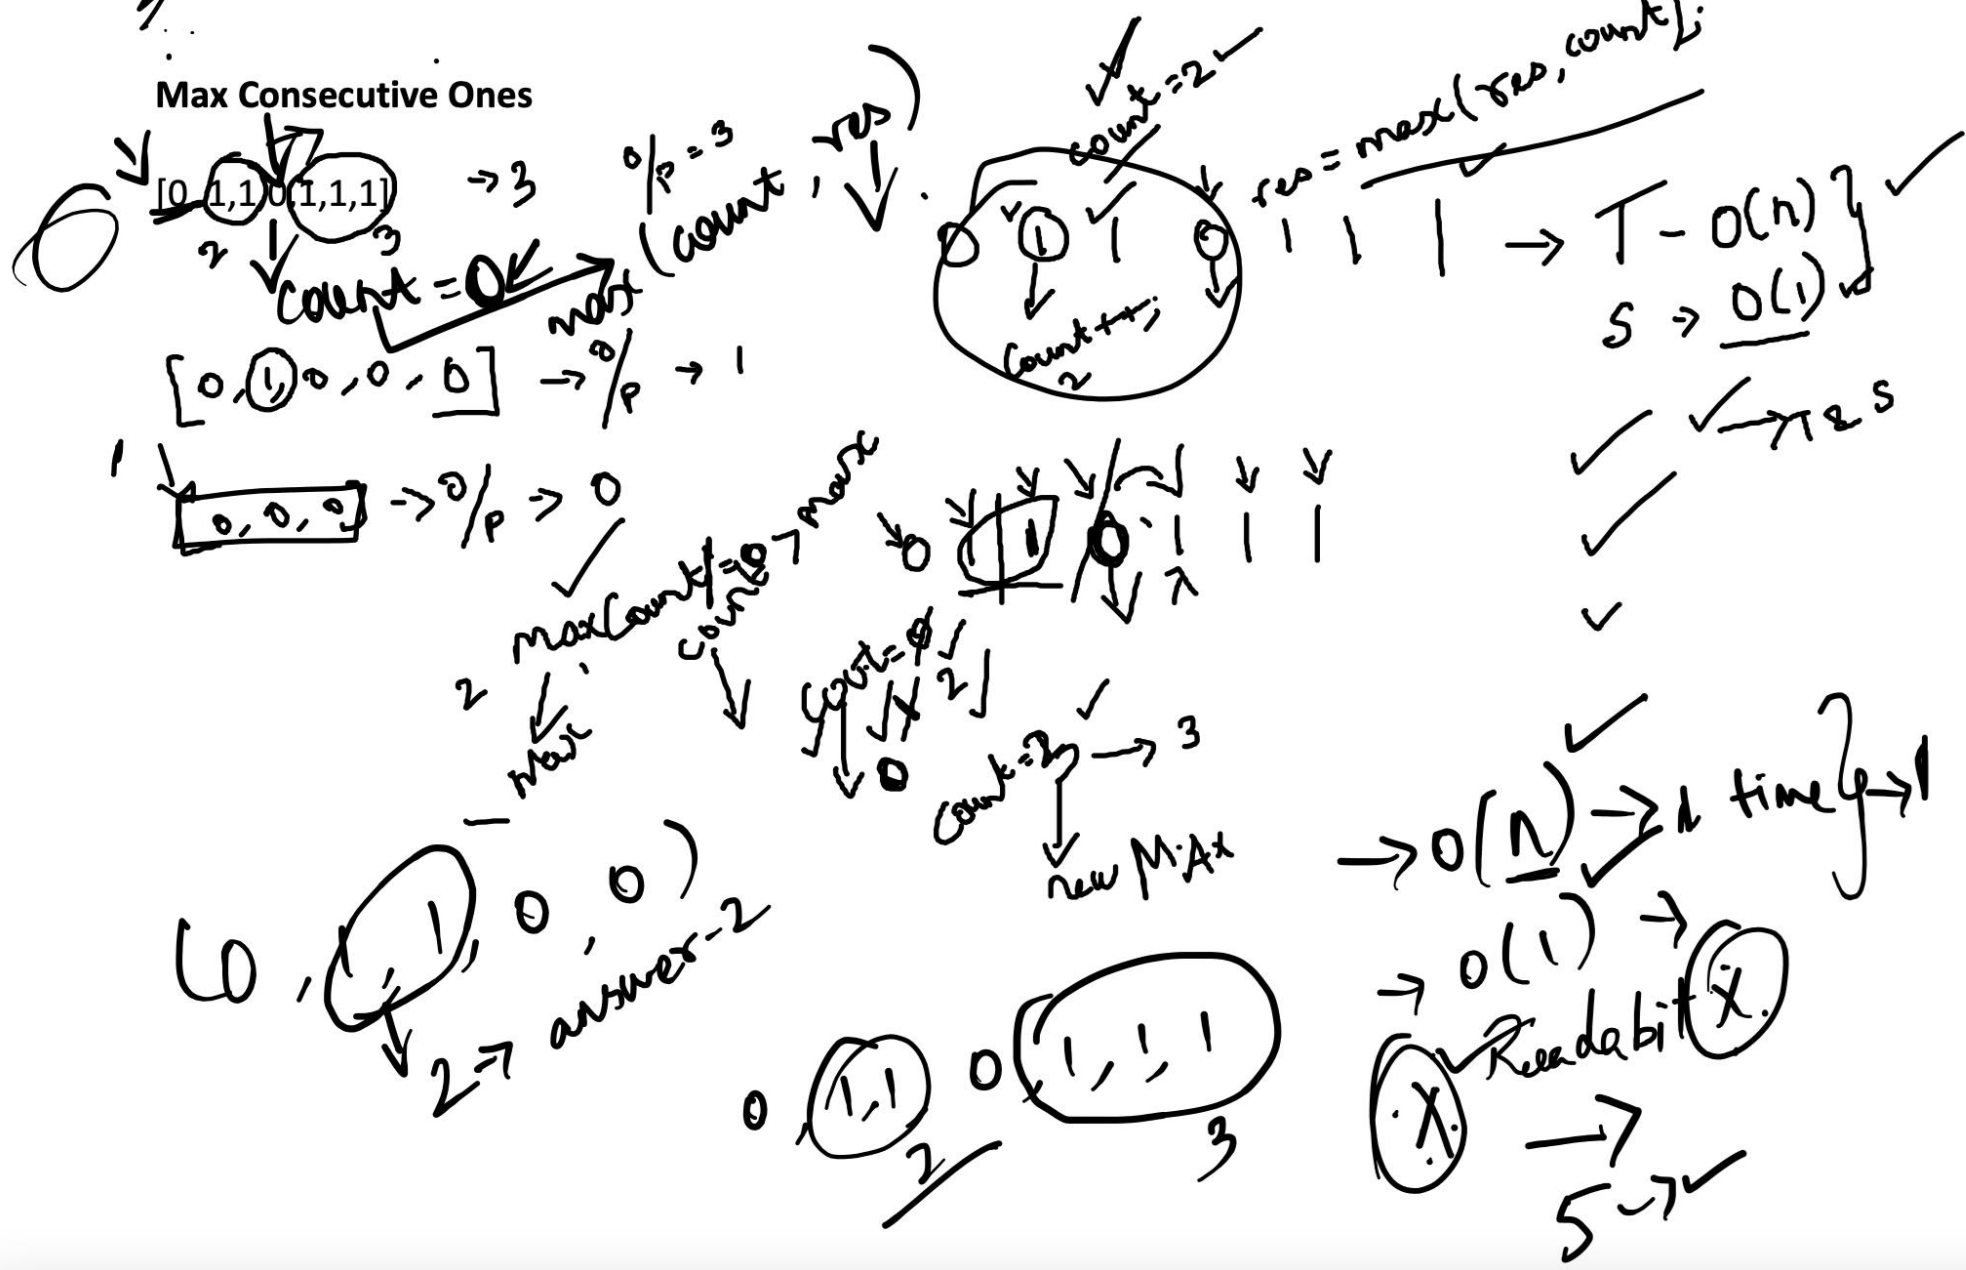 Max Consecutive Ones
[0,1,1,0,1,1,1] → 3
o/p = 3
2 3
count = 0
max(count, res)
count = 2
res = max(res, count);
0 1 1 0 1 1 1 → T - O(n)
S → O(1)
count++;
2
[0, 1, 0, 0, 0] → o/p → 1
→ T & S
0, 0, 0 → o/p → 0
0 1 1 0 1 1 1
max(count
count → max
2
max
count = 0
1 2
0
count = 3 → 3
new MAX
→ O(n) → 1 time } → 1
→ O(1) →
(0, 1, 1, 0, 0)
2 → answer - 2
0, 1, 1 0 1, 1, 1
2 3
X Readabit X
S → ✓